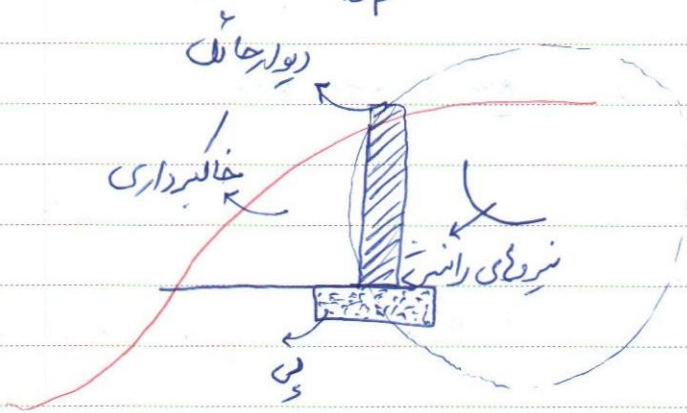 دیوار حائل
خاکبرداری
نیروهای رانشی
پی